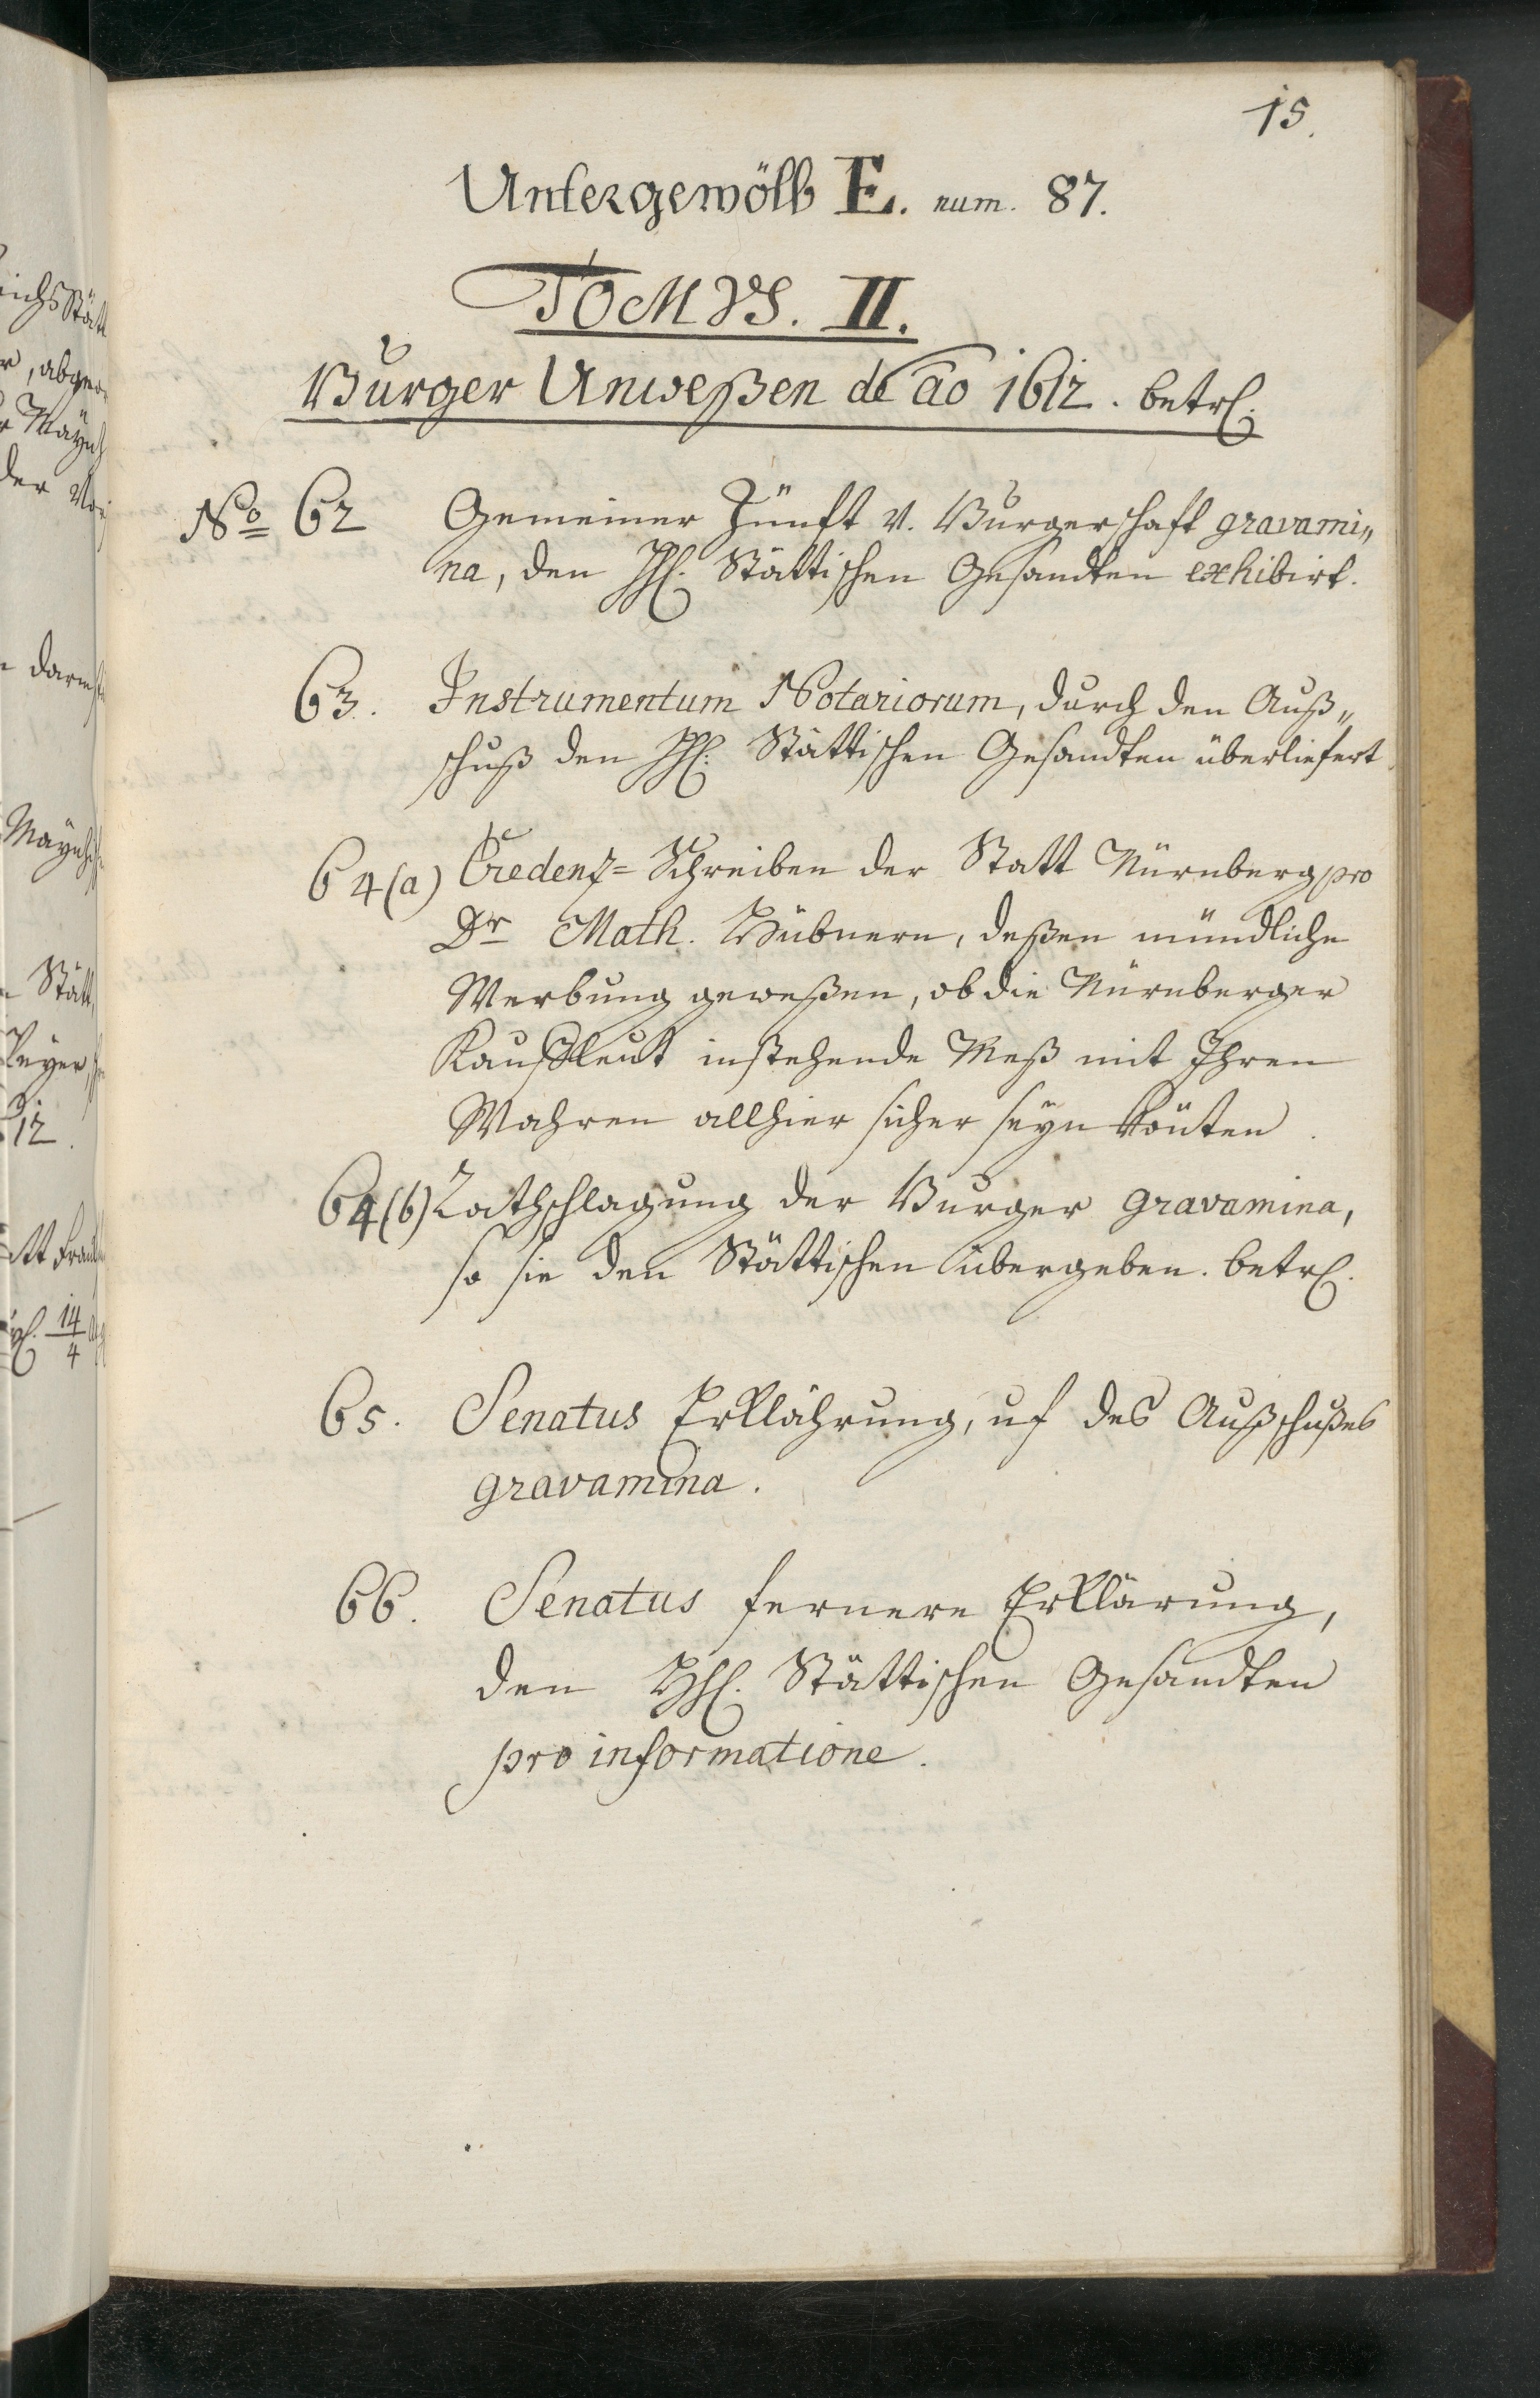 15.
Untergewölb E. num. 87.
TOMVS. II.
Burger Unweßen de ao 1612. betrl.
No 62 Gemeiner Zünft v. Burgerschaft gravami„
na, den HH. Stättischen Gesandten exhibirt.
63. Instrumentum Notariorum, durch den Auß„
schuß den HH. Stättischen Gesandten überliefert
64(a) Credenz=Schreiben der Statt Nürnberg pro
Dr Math. Hübnern, deßen mündliche
Werbung geweßen, ob die Nürnberger
Kaufleut instehende Meß mit Ihren
Wahren allhier sicher seyn könten.
64(b) Rathschlagung der Burger gravamina,
so sie den Stättischen übergeben. betrl.
65. Senatus Erklährung, uf des Außschußes
gravamina.
66. Senatus fernere Erklärung,
den HH. Stättischen Gesandten
pro informatione.